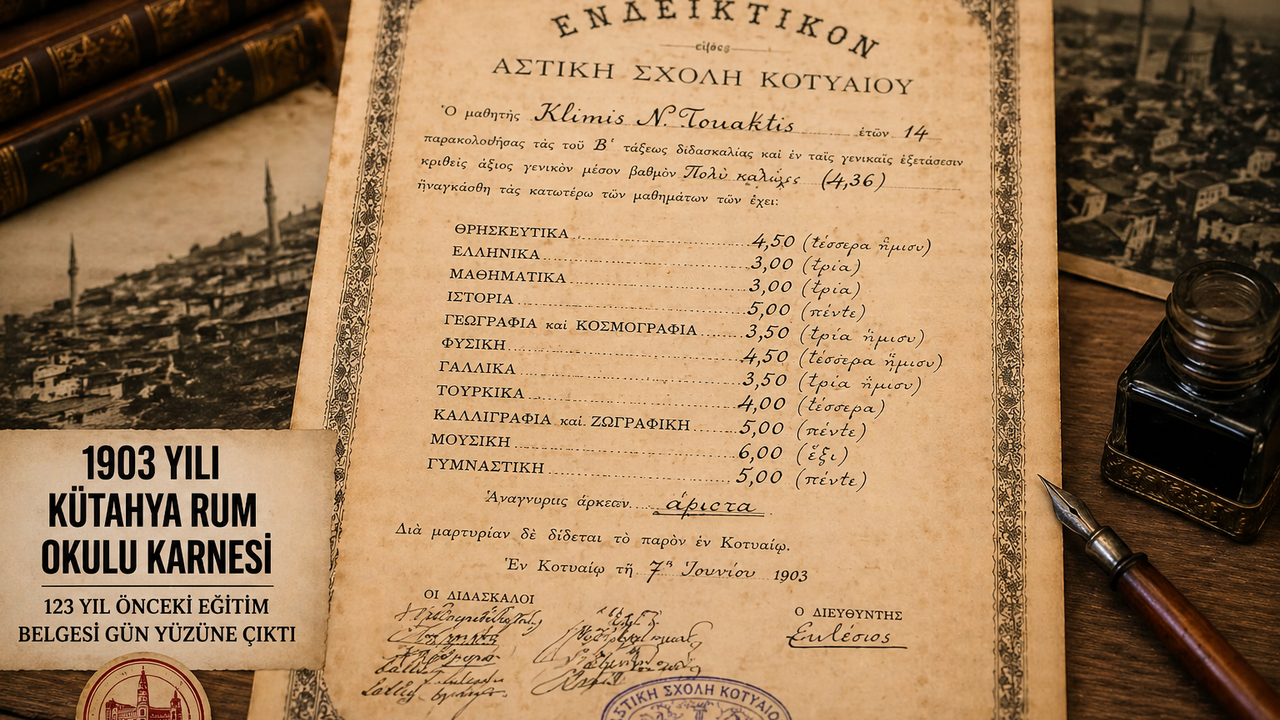 ΕΝΔΕΙΚΤΙΚΟΝ
ΑΣΤΙΚΗ ΣΧΟΛΗ ΚΟΤΥΑΙΟΥ
Ὁ μαθητὴς Klimis N. Touaktis ἐτῶν 14
παρακολοθήσας τὰς τοῦ Β' τάξεως διδασκαλίας καὶ ἐν ταῖς γενικαῖς ἐξετάσεσιν
κριθεὶς ἄξιος γενικὸν μέσον βαθμὸν Πολὺ (4,36)
ἠναγκάσθη τὰς κατωτέρω τῶν μαθημάτων τῶν ἔχει:
ΘΡΗΣΚΕΥΤΙΚΑ 4,50 (τέσσερα ἥμισυ)
ΕΛΛΗΝΙΚΑ 3,00 (τρία)
ΜΑΘΗΜΑΤΙΚΑ 3,00 (τρία)
ΙΣΤΟΡΙΑ 5,00 (πέντε)
ΓΕΩΓΡΑΦΙΑ καὶ ΚΟΣΜΟΓΡΑΦΙΑ 3,50 (τρία ἥμισυ)
ΦΥΣΙΚΗ 4,50 (τέσσερα ἥμισυ)
ΓΑΛΛΙΚΑ 3,50 (τρία ἥμισυ)
ΤΟΥΡΚΙΚΑ 4,00 (τέσσερα)
ΚΑΛΛΙΓΡΑΦΙΑ καὶ ΖΩΓΡΑΦΙΚΗ 5,00 (πέντε)
ΜΟΥΣΙΚΗ 6,00 (ἕξι)
ΓΥΜΝΑΣΤΙΚΗ 5,00 (πέντε)
ἄριστα
Διὰ μαρτυρίαν δὲ δίδεται τὸ παρὸν ἐν Κοτυαίῳ.
Ἐν Κοτυαίῳ τῇ 7ῃ Ἰουνίου 1903
ΟΙ ΔΙΔΑΣΚΑΛΟΙ
Ο ΔΙΕΥΘΥΝΤΗΣ
ΑΣΤΙΚΗ ΣΧΟΛΗ ΚΟΤΥΑΙΟΥ
1903 YILI
KÜTAHYA RUM
OKULU KARNESİ
123 YIL ÖNCEKİ EĞİTİM
BELGESİ GÜN YÜZÜNE ÇIKTI